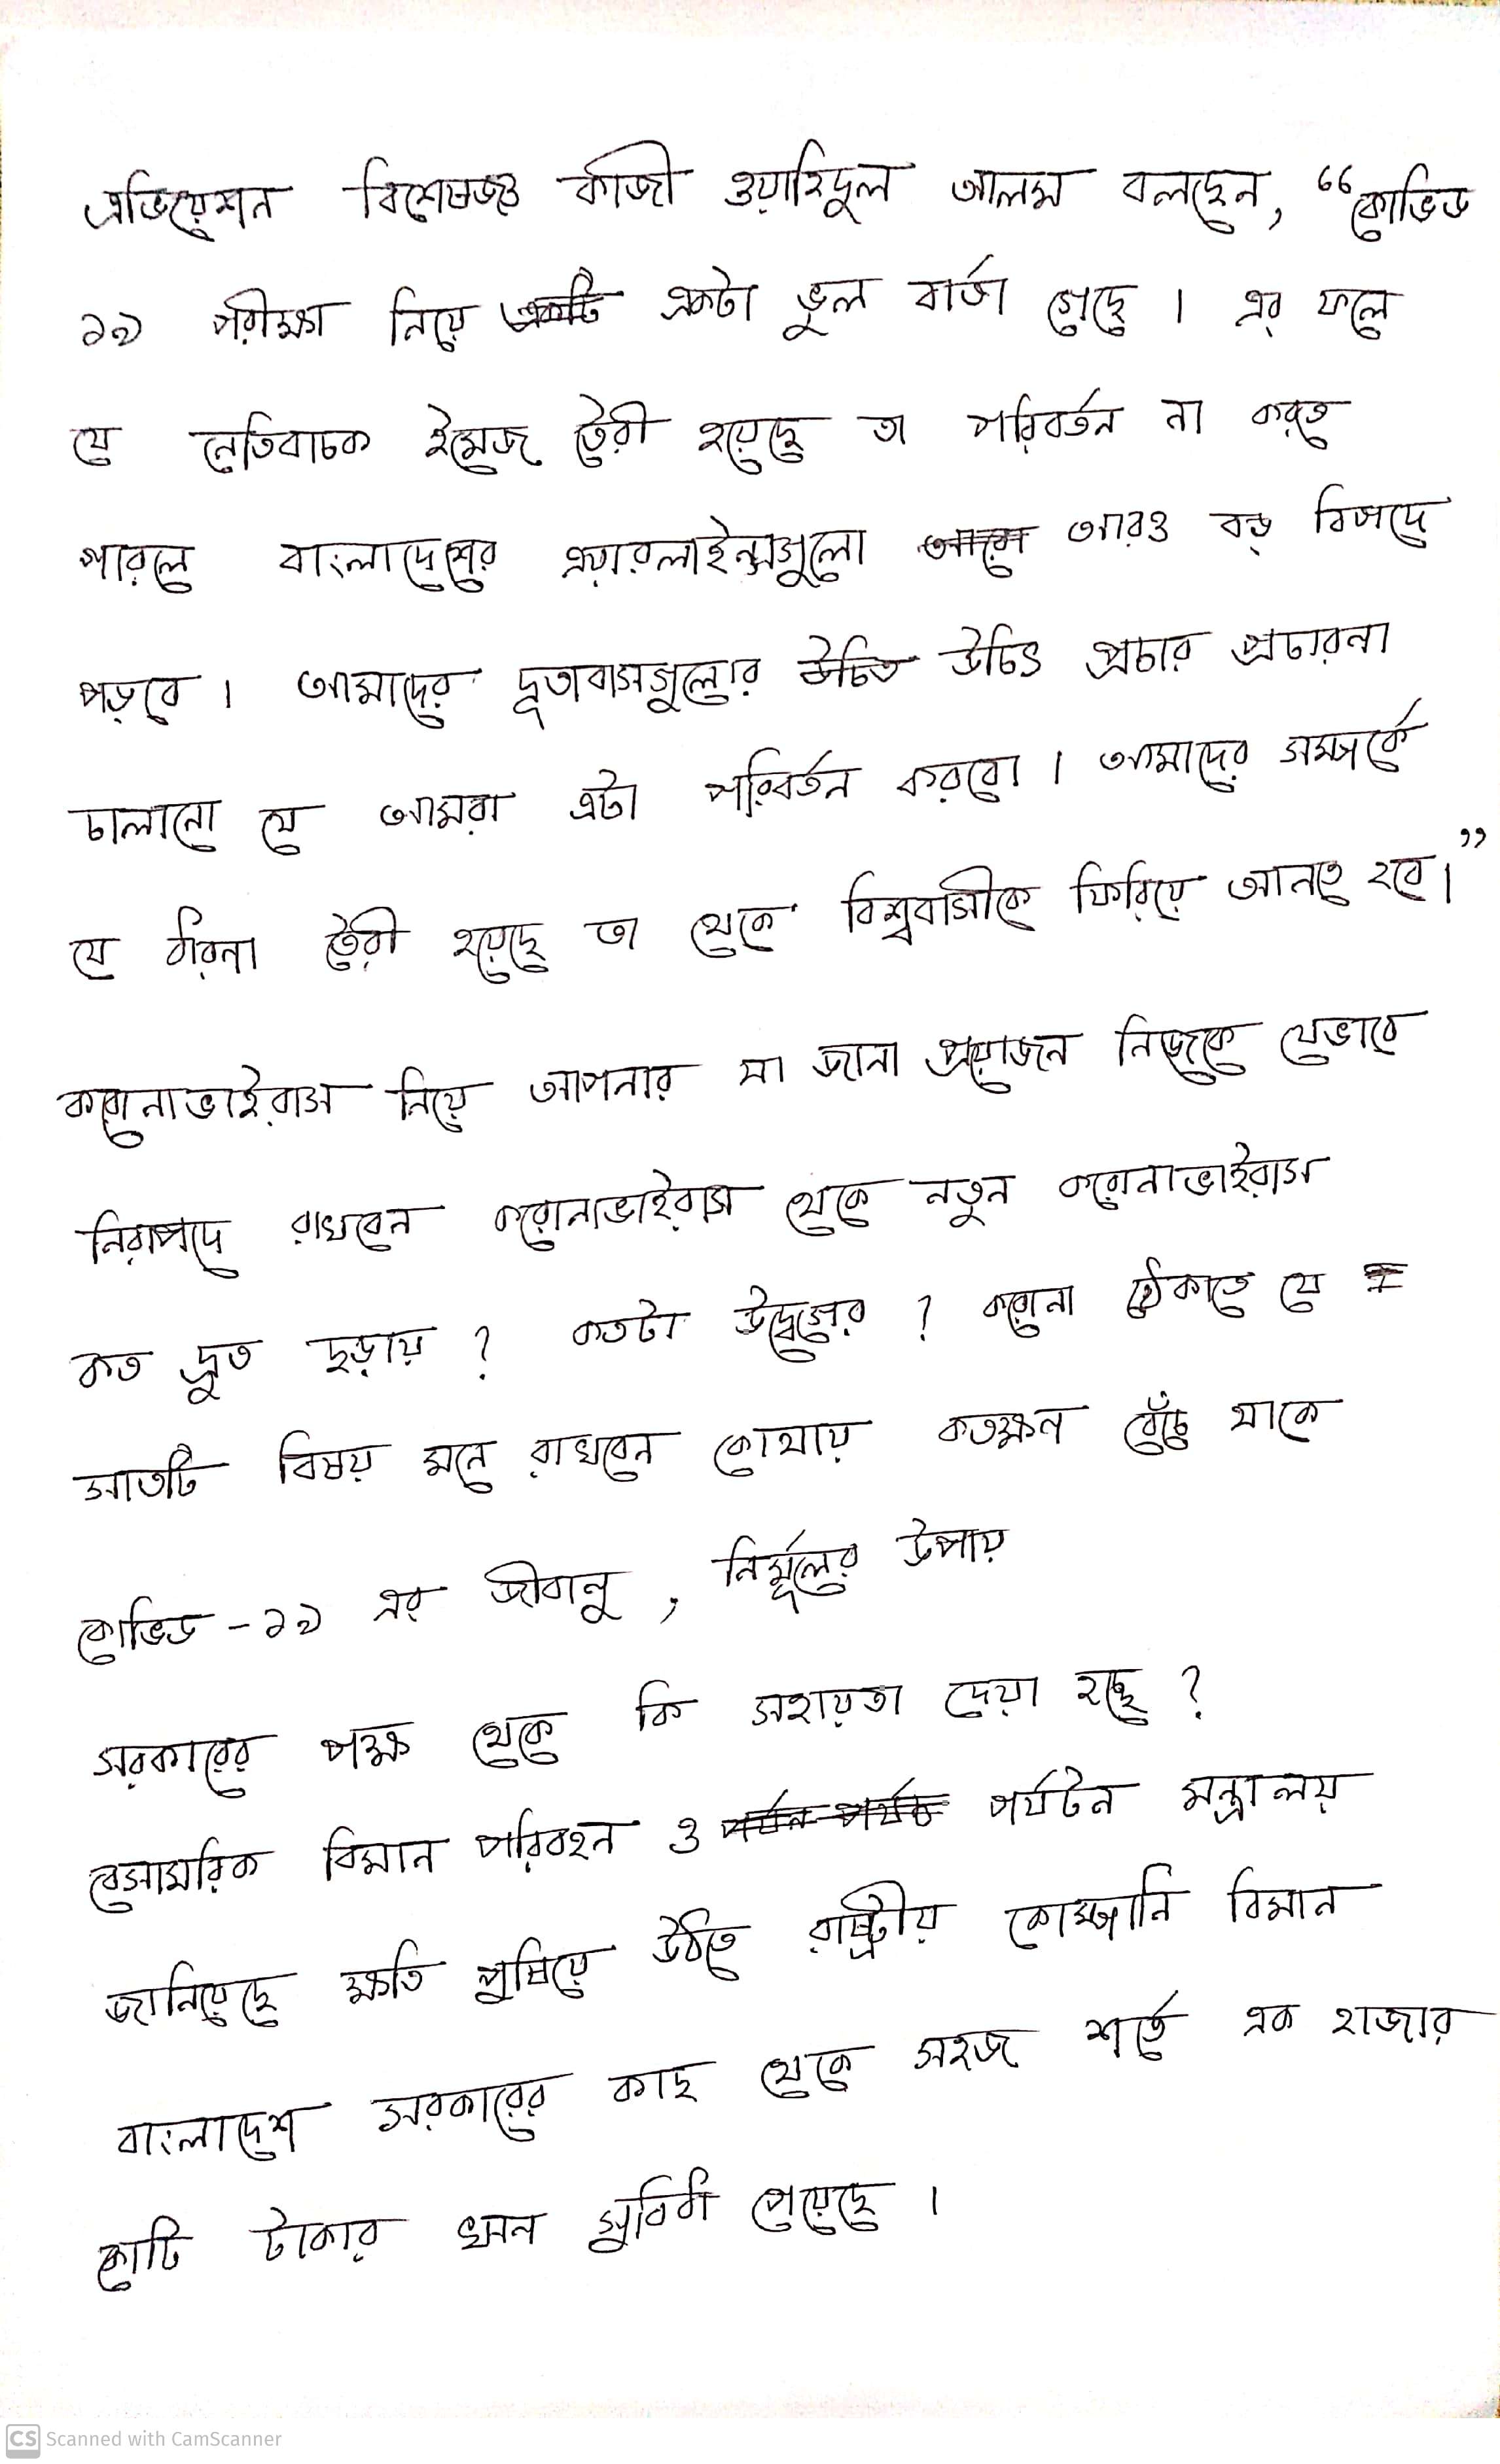 এভিয়েশন বিশেষজ্ঞ কাজী ওয়াহিদুল আলম বলছেন, “কোভিড
১৯ পরীক্ষা নিয়ে একটি একটা ভুল বার্তা গেছে । এর ফলে
যে নেতিবাচক ইমেজ তৈরী হয়েছে তা পরিবর্তন না করতে
পারলে বাংলাদেশের এয়ারলাইন্সগুলো আরো আরও বড় বিপদে
পড়বে । আমাদের দূতাবাসগুলোর উচিত উচিৎ প্রচার প্রচারনা
চালানো যে আমরা এটা পরিবর্তন করবো । আমাদের সম্পর্কে
যে ধারনা তৈরী হয়েছে তা থেকে বিশ্ববাসীকে ফিরিয়ে আনতে হবে।”
করোনাভাইরাস নিয়ে আপনার যা জানা প্রয়োজন নিজেকে যেভাবে
নিরাপদে রাখবেন করোনাভাইরাস থেকে নতুন করোনাভাইরাস
কত দ্রুত ছড়ায় ? কতটা উদ্বেগের ? করোনা ঠেকাতে যে
সাতটি বিষয় মনে রাখবেন কোথায় কতক্ষন বেঁচে থাকে
কোভিড - ১৯ এর জীবানু , নির্মূলের উপায়
সরকারের পক্ষ থেকে কি সহায়তা দেয়া হচ্ছে ?
বেসামরিক বিমান পরিবহন ও পর্যটন মন্ত্রালয়
জানিয়েছে ক্ষতি পুষিয়ে উঠতে রাষ্ট্রীয় কোম্পানি বিমান
বাংলাদেশ সরকারের কাছ থেকে সহজ শর্তে এক হাজার
কোটি টাকার ঋন সুবিধা পেয়েছে ।
CS Scanned with CamScanner